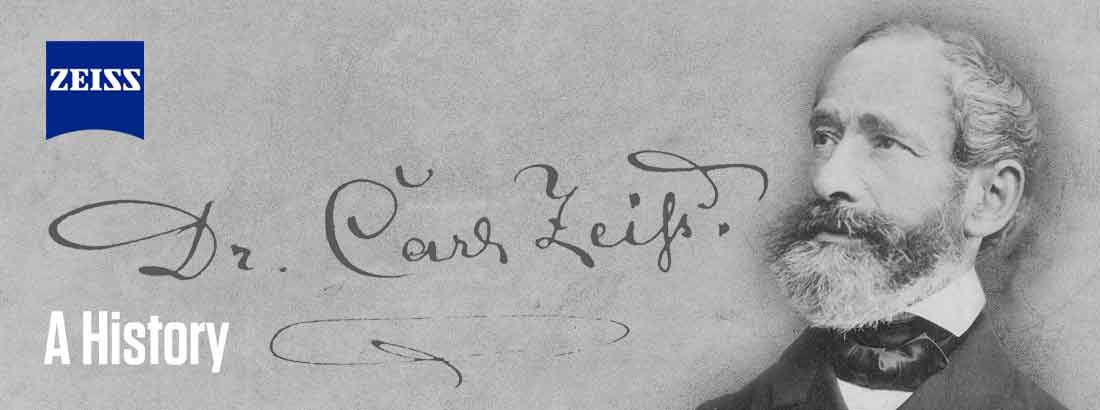 ZEISS
Dr. Carl Zeiſs.
A History